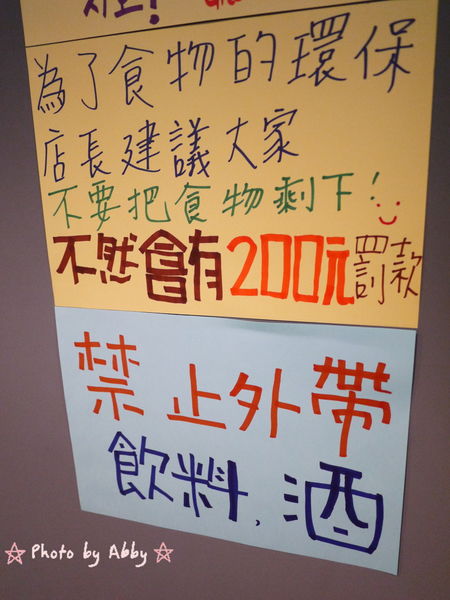 為了食物的環保
店長建議大家
不要把食物剩下!
不然會有200元罰款
禁止外帶
飲料,酒
Photo by Abby